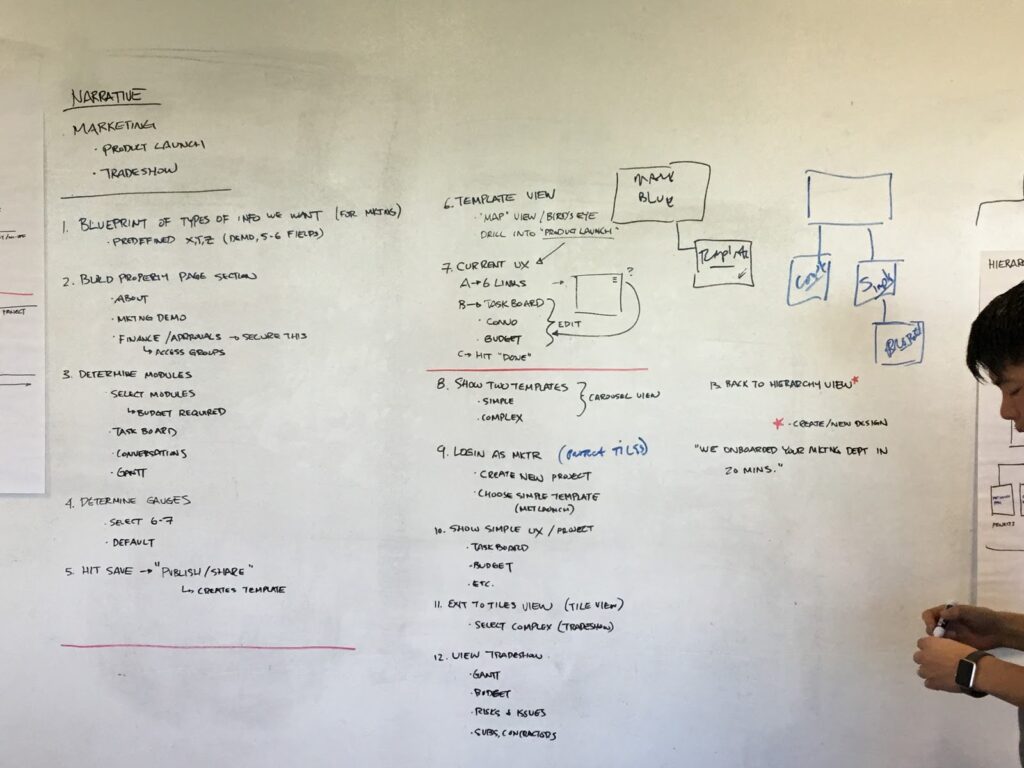 NARRATIVE
MARKETING
· PRODUCT LAUNCH
· TRADESHOW
1. BLUEPRINT OF TYPES OF INFO WE WANT (FOR MKTNG)
· PREDEFINED X,Y,Z (DEMO, 5-6 FIELDS)
2. BUILD PROPERTY PAGE SECTION
· ABOUT
· MKTNG DEMO
· FINANCE/APPROVALS → SECURE THIS
↳ ACCESS GROUPS
3. DETERMINE MODULES
· SELECT MODULES
↳ BUDGET REQUIRED
· TASK BOARD
· CONVERSATIONS
· GANTT
4. DETERMINE GAUGES
· SELECT 6-7
· DEFAULT
5. HIT SAVE → "PUBLISH/SHARE"
↳ CREATES TEMPLATE
6. TEMPLATE VIEW
· "MAP" VIEW/BIRD'S EYE
DRILL INTO "PRODUCT LAUNCH"
7. CURRENT UX
A → 6 LINKS → ?
B → TASK BOARD
· CONVO
· BUDGET
EDIT
C → HIT "DONE"
8. SHOW TWO TEMPLATES
· SIMPLE
· COMPLEX
CAROUSEL VIEW
9. LOGIN AS MKTR (TILES)
· CREATE NEW PROJECT
· CHOOSE SIMPLE TEMPLATE
(MKT LAUNCH)
10. SHOW SIMPLE UX/PROJECT
· TASK BOARD
· BUDGET
· ETC.
11. EXIT TO TILES VIEW (TILE VIEW)
· SELECT COMPLEX (TRADESHOW)
12. VIEW TRADESHOW
· GANTT
· BUDGET
· RISKS + ISSUES
· SUBS, CONTRACTORS
BLUE
TEMPLATE
13. BACK TO HIERARCHY VIEW*
* · CREATE/NEW DESIGN
"WE ONBOARDED YOUR MKTNG DEPT IN
20 MINS."
HIERARC
PROJECTS
PROJECT